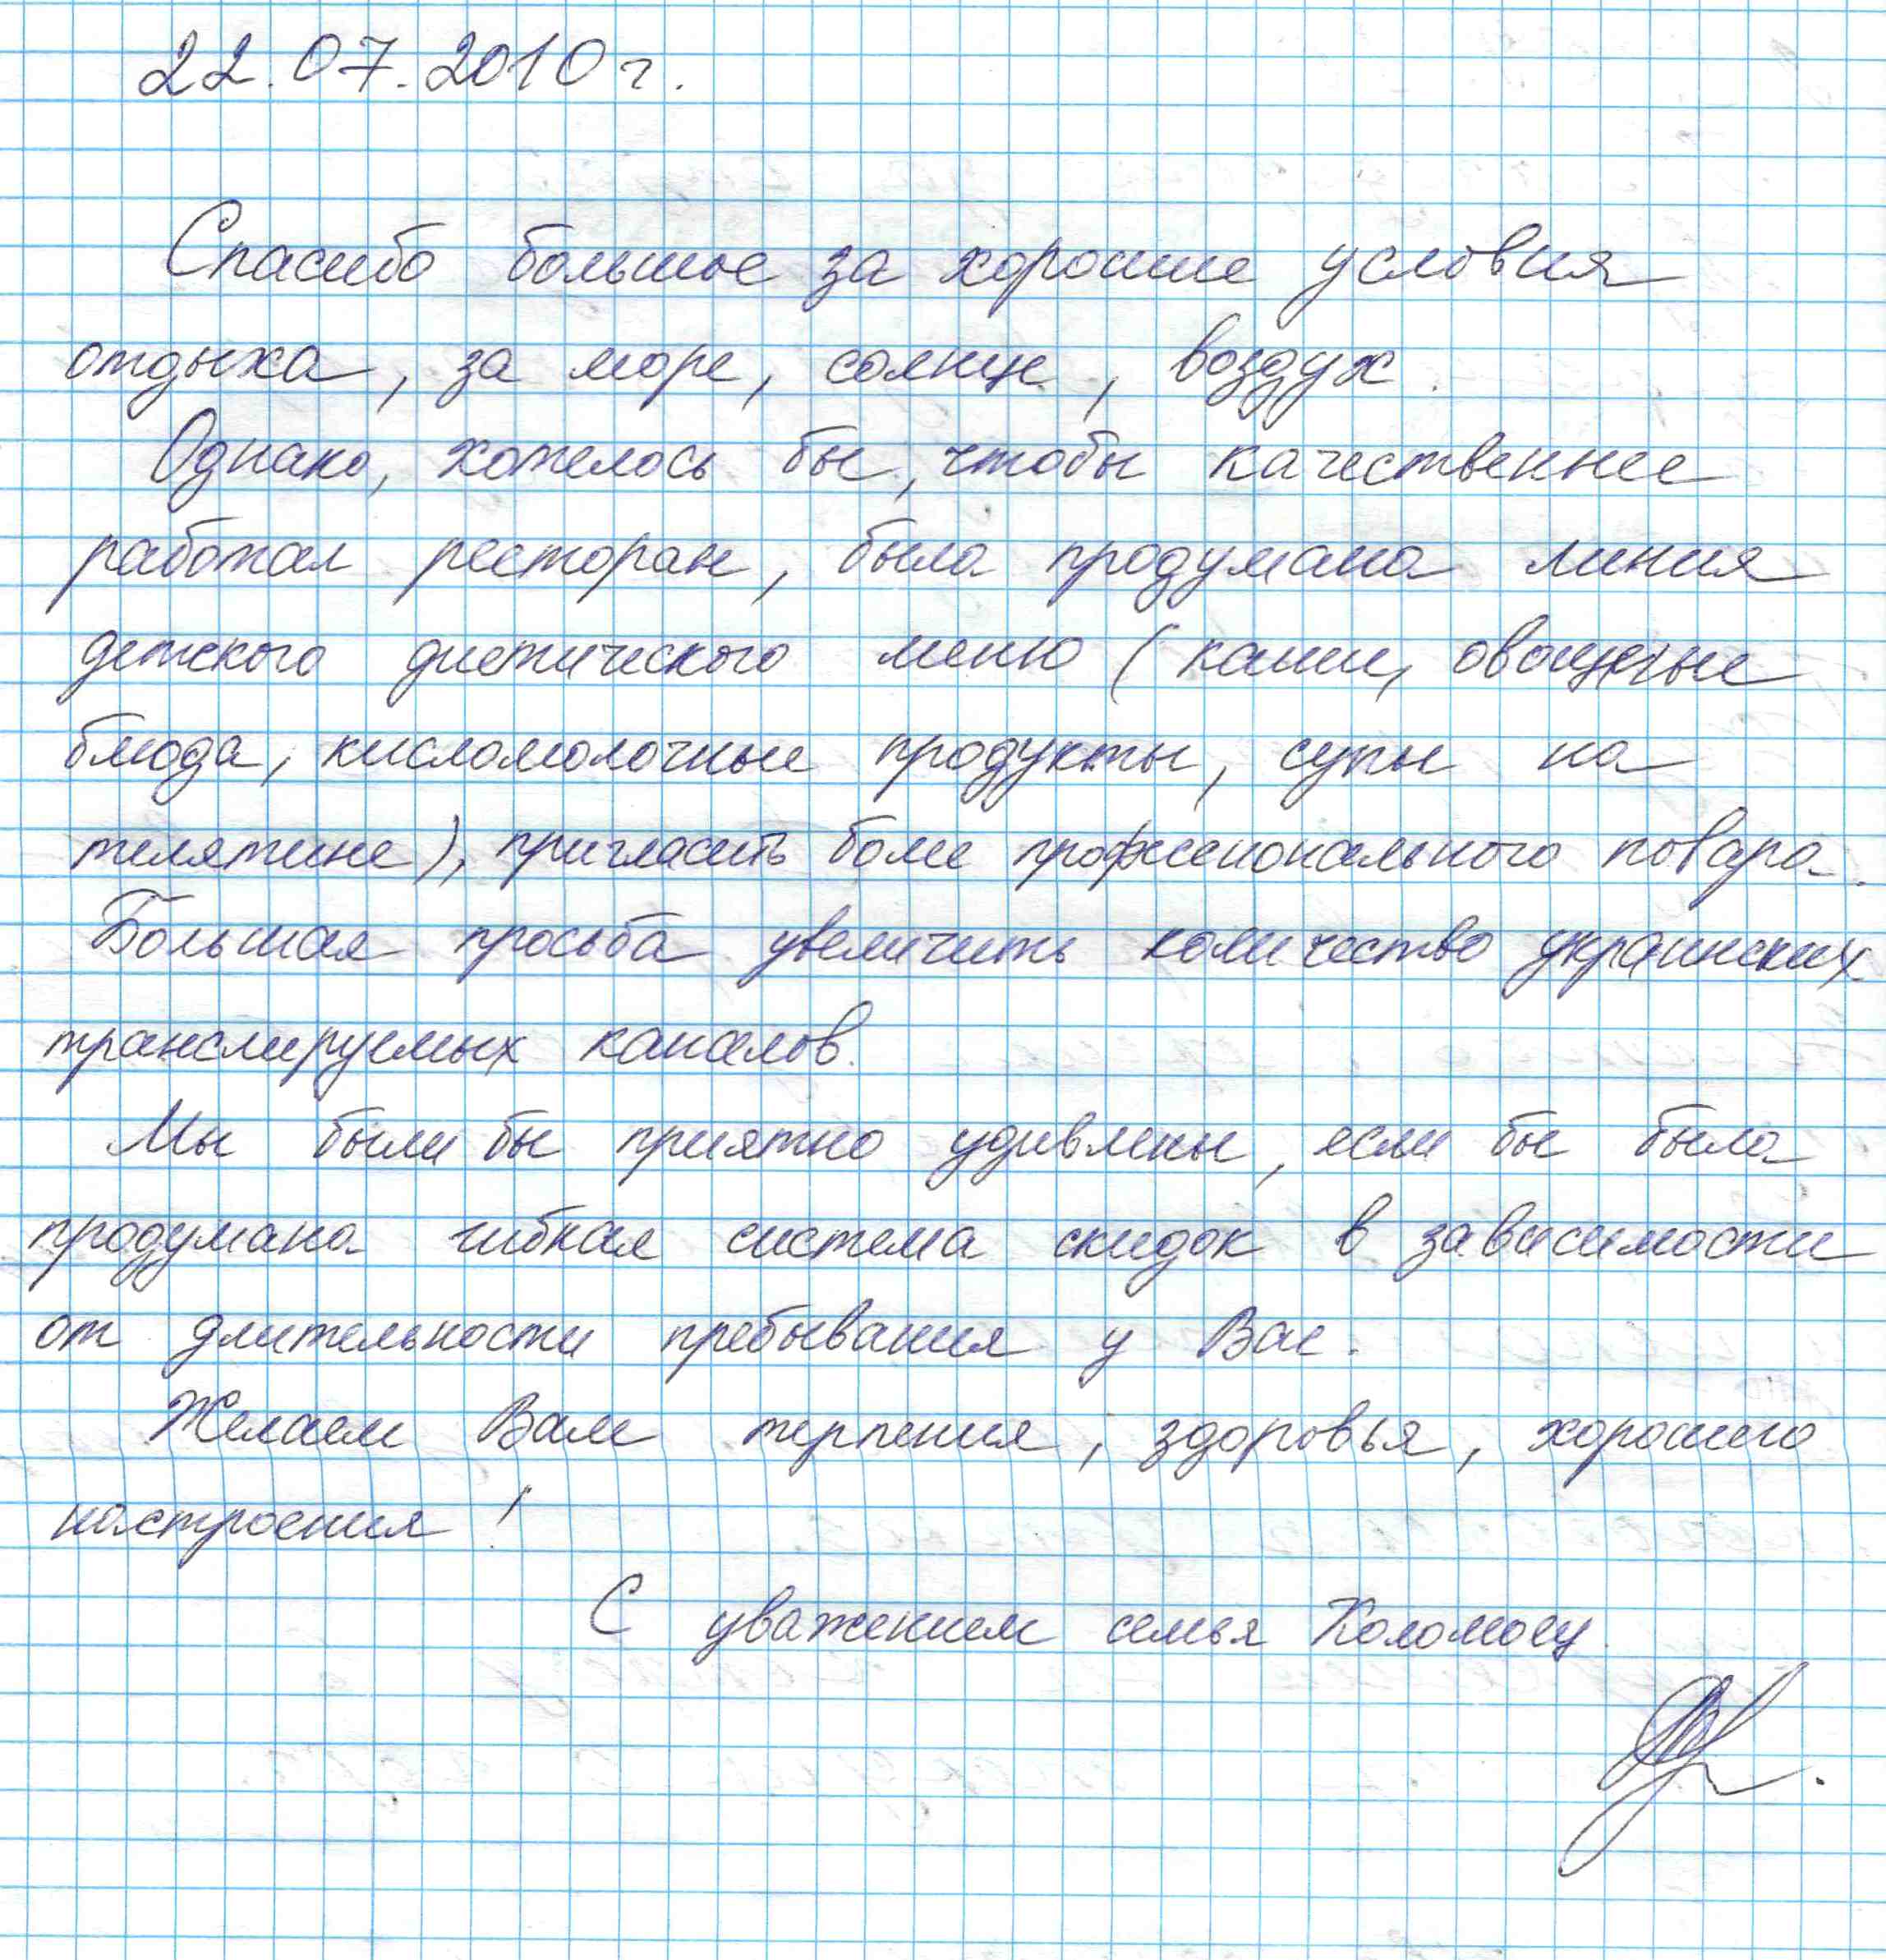 22.07.2010 г.
Спасибо большое за хорошие условия
отдыха, за море, солнце, воздух.
Однако, хотелось бы, чтобы качественнее
работал ресторан, была продумана линия
детского диетического меню (каши, овощные
блюда, кисломолочные продукты, супы на
телятине), пригласить более професионального повара.
Большая просьба увеличить количество украинских
транслируемых каналов.
Мы были бы приятно удивлены, если бы была
продумана гибкая система скидок в зависимости
от длительности пребывания у Вас.
Желаем Вам терпения, здоровья, хорошего
настроения!
С уважением семья Коломоец